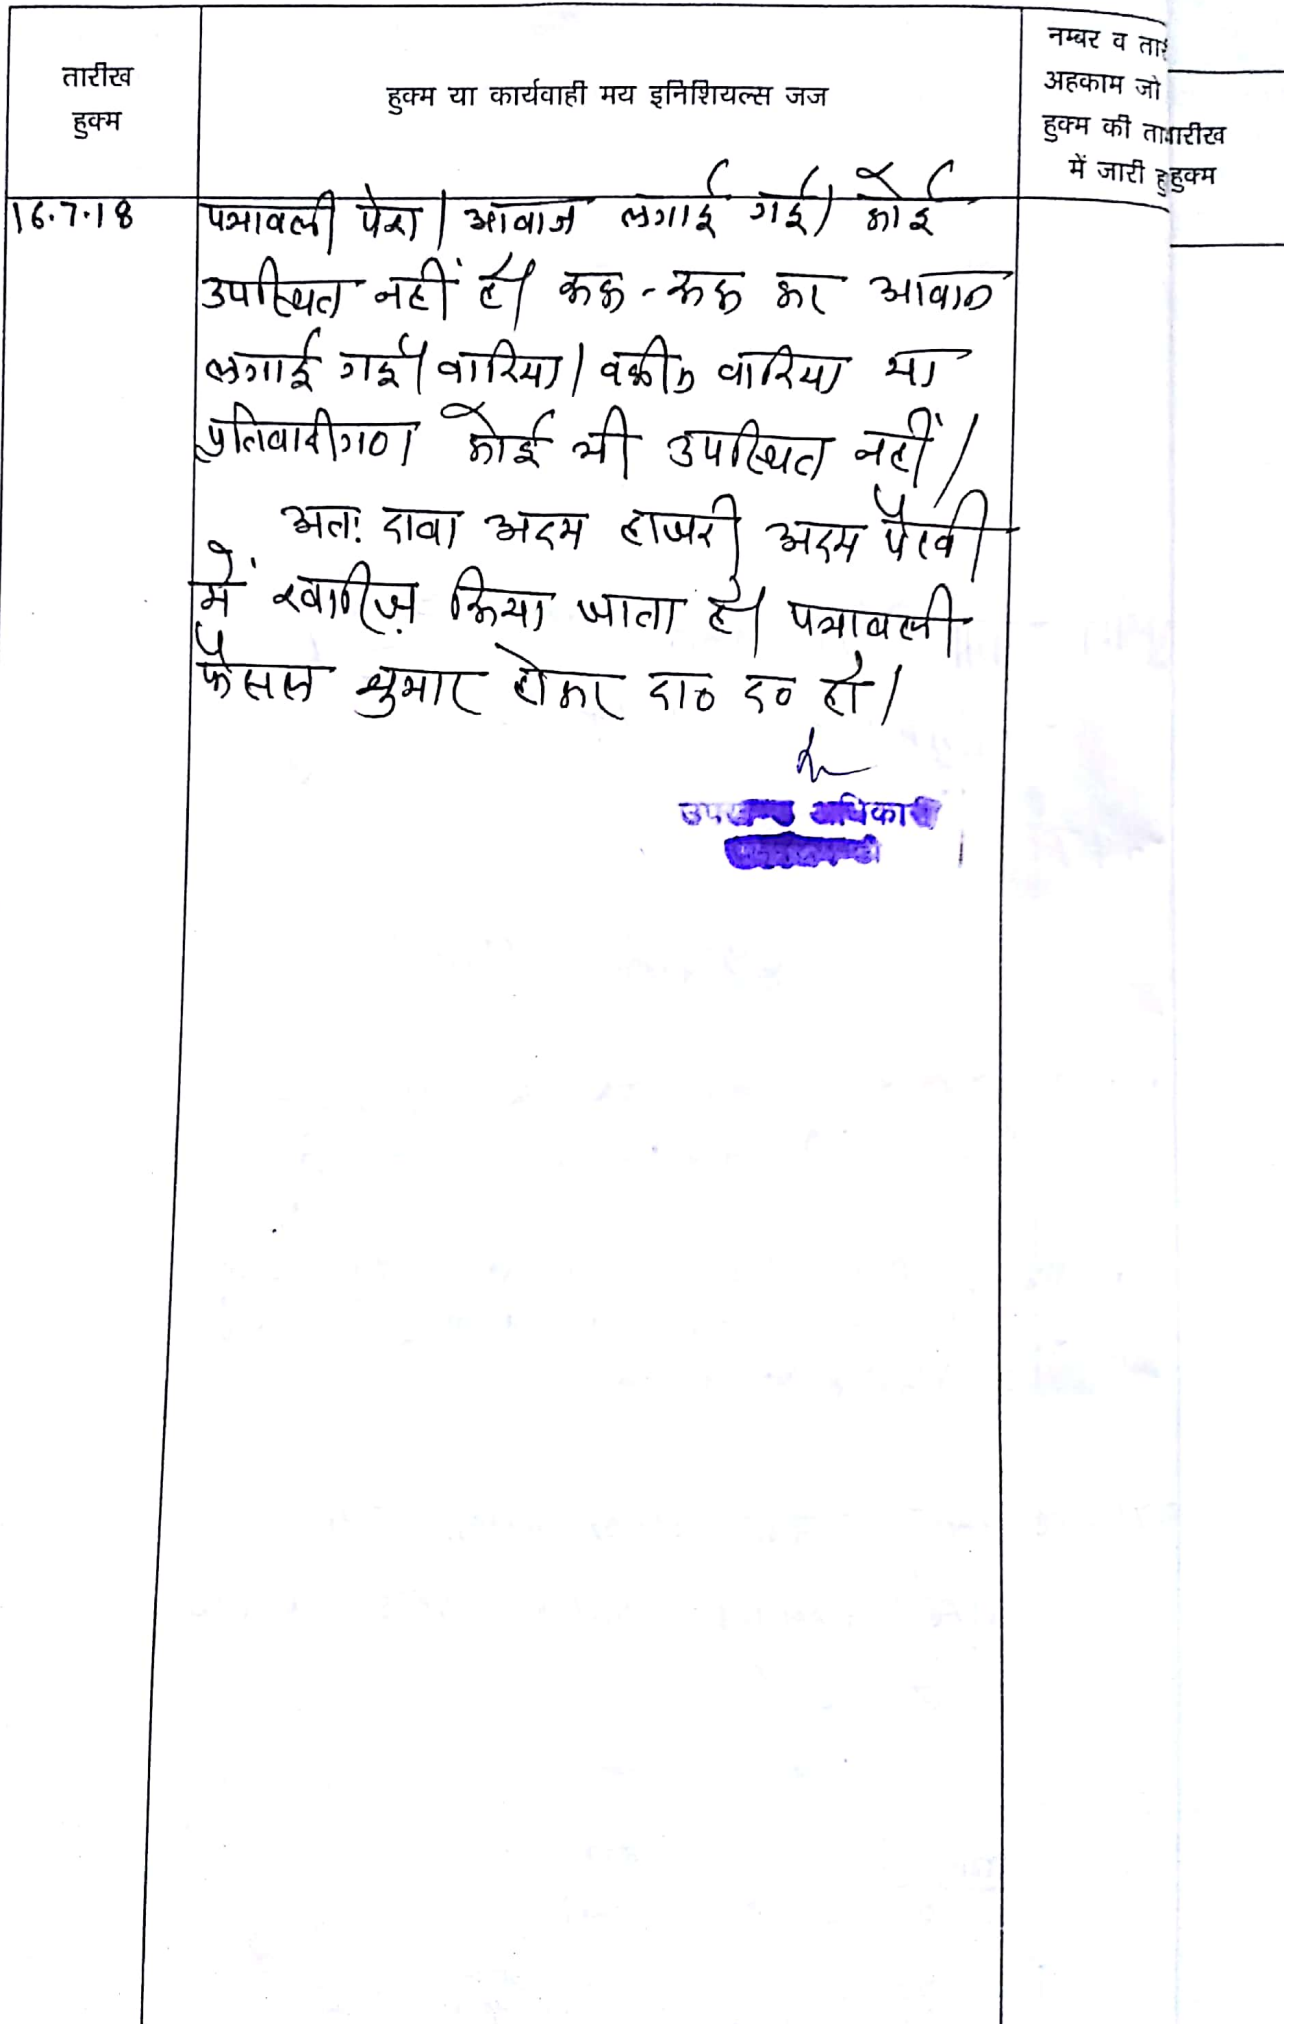 तारीख
हुक्म
हुक्म या कार्यवाही मय इनिशियल्स जज
नम्बर व तारी
अहकाम जो
हुक्म की ता
में जारी हु
तारीख
हुक्म
16.7.18
पत्रावली पेश। आवाज लगाई गई। कोई
उपस्थित नहीं है। रूक-रूक कर आवाज
लगाई गई। वादिया। वकील वादिया या
प्रतिवादीगण कोई भी उपस्थित नहीं।
अतः दावा अदम हाजरी अदम पैरवी
में खारिज़ किया जाता है। पत्रावली
फैसल शुमार होकर दा० द० हो।
उपखण्ड अधिकारी